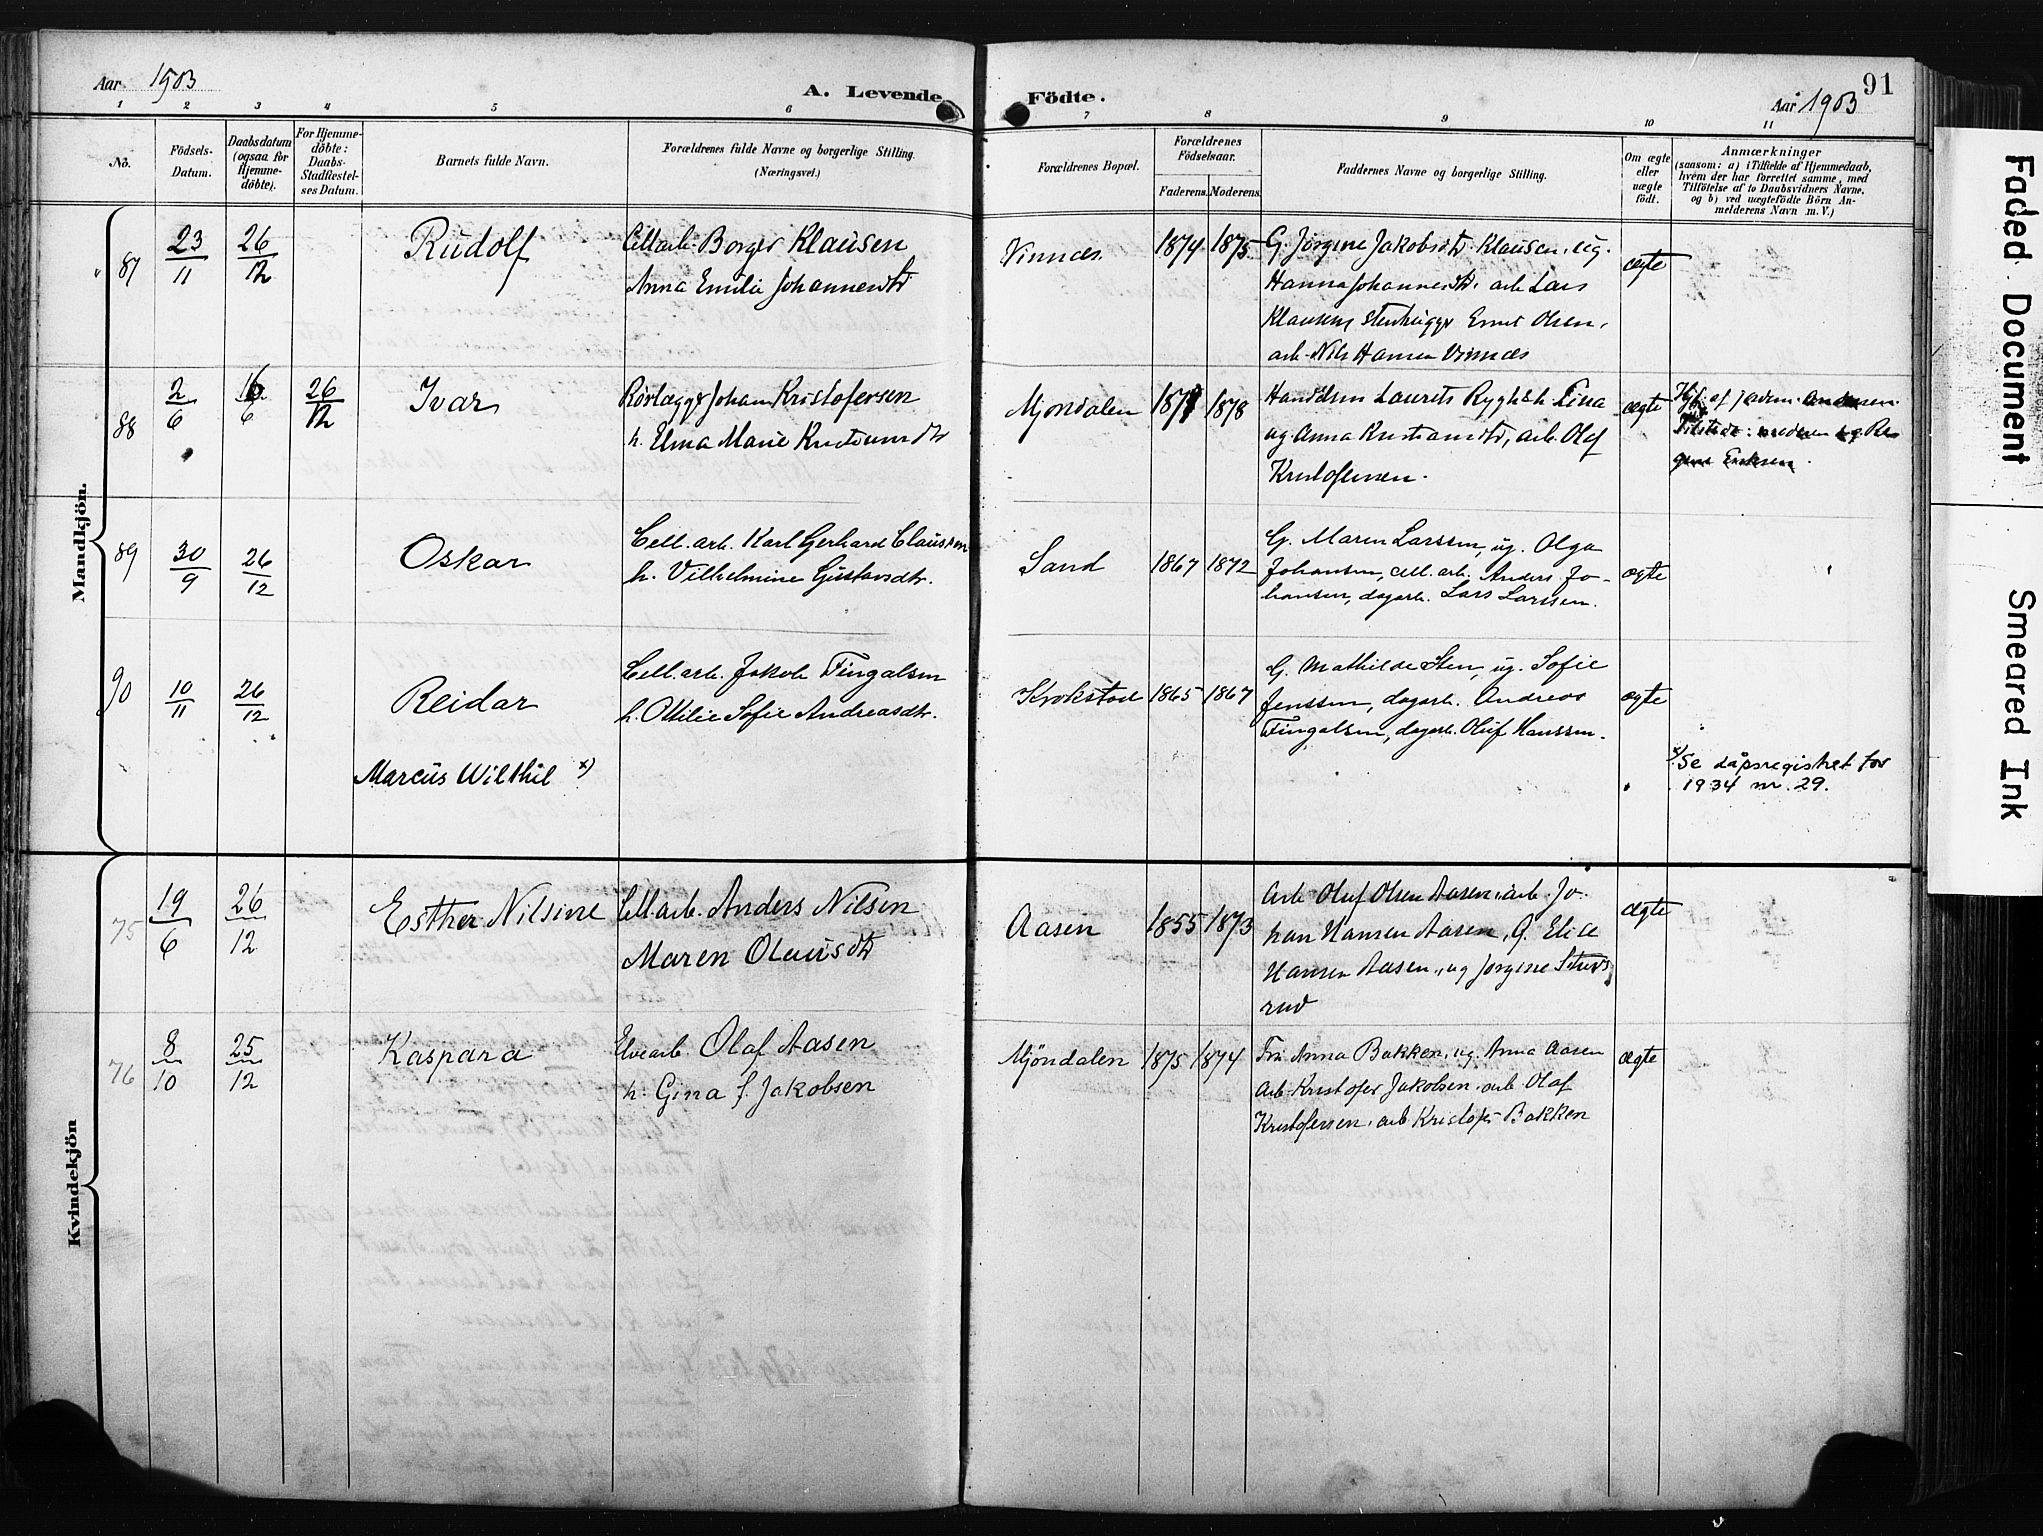 Aar 1903
A. Levende Födte.
Aar 1903
91
1 2 3 4 5 6 7 8 9 10 11
No.
Födsels-Datum.
Daabsdatum (ogsaa for Hjemme-döbte).
For Hjemme-döbte: Daabs-Stadfæstel-ses Datum.
Barnets fulde Navn.
Forældrenes fulde Navne og borgerlige Stilling. (Næringsvei.)
Forældrenes Bopæl.
Forældrenes Födselsaar.
Faderens. Moderens.
Faddernes Navne og borgerlige Stilling.
Om ægte eller uægte födt.
Anmærkninger
(saasom: a) i Tilfælde af Hjemmedaab,
hvem der har forrettet samme, med
Tilföielse af to Daabsvidners Navne,
og b) ved uægtefödte Börn An-
melderens Navn m. V.)
Mandkjön.
87 23/11 26/12 Rudolf
Cell.arb. Borger Klausen
Anna Emilie Johannesdtr
Vinnæs 1874 1875
G. Jørgine Jakobsdtr Klausen, ug.
Hanna Johannesdtr. arb Lars
Klausen, Stenhugger Ernst Olsen,
arb. Nils Hansen Vinnæs
ægte
88 2/6 16/6 26/12 Ivar
Rørlægger Johan Kristofersen
h. Elma Marie Kristiansdtr
Mjøndalen 1877 1878
Handelsm Laurits Rygh & h Lina
ug. Anna Kristiansdtr, arb. Olaf
Kristofersen.
ægte
89 30/9 26/12 Oskar
Cell. arb. Karl Gerhard Claussen
h. Vilhelmine Gustavsdtr.
Sand 1867 1872
G. Maren Larssen, ug. Olga
Johansen, cell. arb. Anders Jo-
hansen, dagarb. Lars Larssen.
ægte
90 10/11 26/12 Reidar
Cell.arb. Jakob Fingalsen
h. Ottilie Sofie Andreasdtr.
Krokstad 1865 1867
G. Mathilde Sten, ug. Sofie
Jenssen, dagarb. Andreas
Fingalsen, dagarb. Oluf Hanssen.
ægte
Marcus Wilthil x)
x) Se dåpsregistret for
1934 nr. 29.
Kvindekjön
75 19/6 26/12 Esther Nilsine
Cell.arb. Anders Nilsen
Maren Olausdtr
Aasen 1855 1873
Arb Oluf Olsen Aasen, arb. Jo-
han Hansen Aasen, G. Elise
Hansen Aasen, ug Jørgine Stuvs
rud
ægte
76 8/10 25/12 Kaspara
Elvearb. Olaf Aasen
h. Gina f. Jakobsen
Mjöndalen 1875 1874
Fru Anna Bakken, ug. Anna Aasen
Arb. Kristofer Jakobsen, arb Olaf
Kristofersen, arb Kristofer Bakken
ægte
Faded Document
Smeared Ink